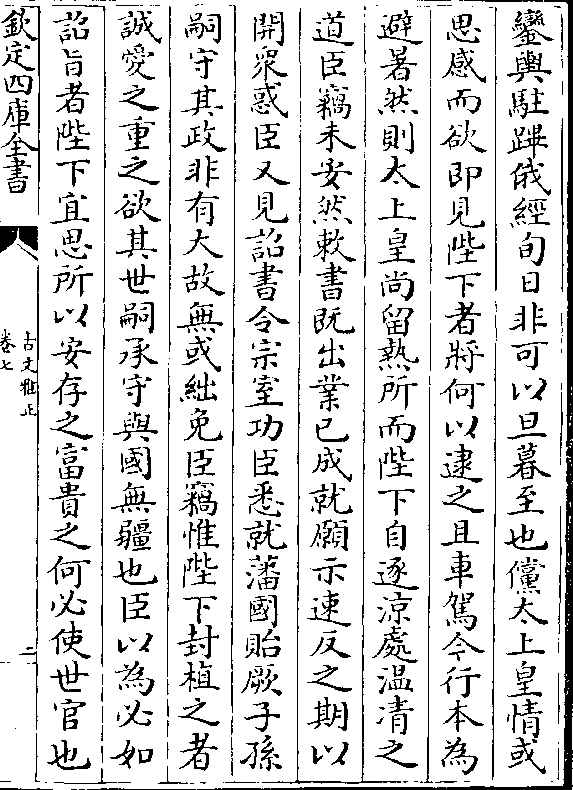 鑾輿駐蹕俄經旬日非可以旦暮至也儻太上皇情或
思感而欲即見陛下者將何以逮之且車駕今行本為
避暑然則太上皇尚留熱所而陛下自逐涼處温凊之
道臣竊未安然敕書既出業已成就願示速反之期以
開衆惑臣又見詔書令宗室功臣悉就藩國貽厥子孫
嗣守其政非有大故無或絀免臣竊惟陛下封植之者
誠愛之重之欲其世嗣承守與國無疆也臣以為必如
詔旨者陛下宜思所以安存之富貴之何必使世官也
欽定四庫全書
古文雅正
卷七
二